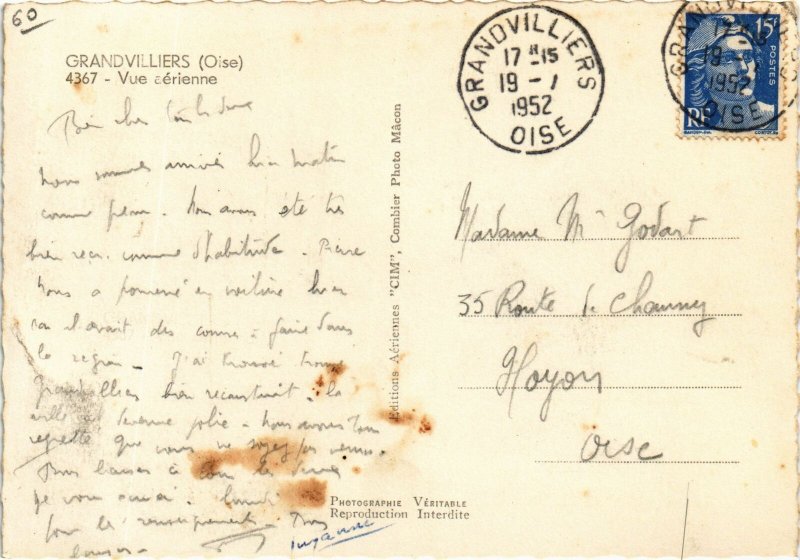 60
GRANDVILLIERS (Oise)
4367 - Vue aérienne
Bien cher
Nous sommes arrivés hier matin
comme prévu. Nous avons été très
bien reçu comme d'habitude. Pierre
nous a promené en voiture hier
car il avait des courses à faire dans
la région. J'ai trouvé
Grandvilliers bien reconstruit. la
ville est devenue jolie. Nous avons tous
regretté que vous ne soyez pas venus.
baisers à tous les
je vous aussi.
pour les renseignements. Bons
baisers.
Suzanne
Editions Aériennes "CIM", Combier Photo Mâcon
PHOTOGRAPHIE VÉRITABLE
Reproduction Interdite
GRANDVILLIERS
17 H 15
19 - 1
1952
OISE
GRANDVILLIERS
17 H 15
19 - 1
1952
OISE
15F
POSTES
RF
Madame Mce Godart
35 Route de Chauny
Noyon
Oise